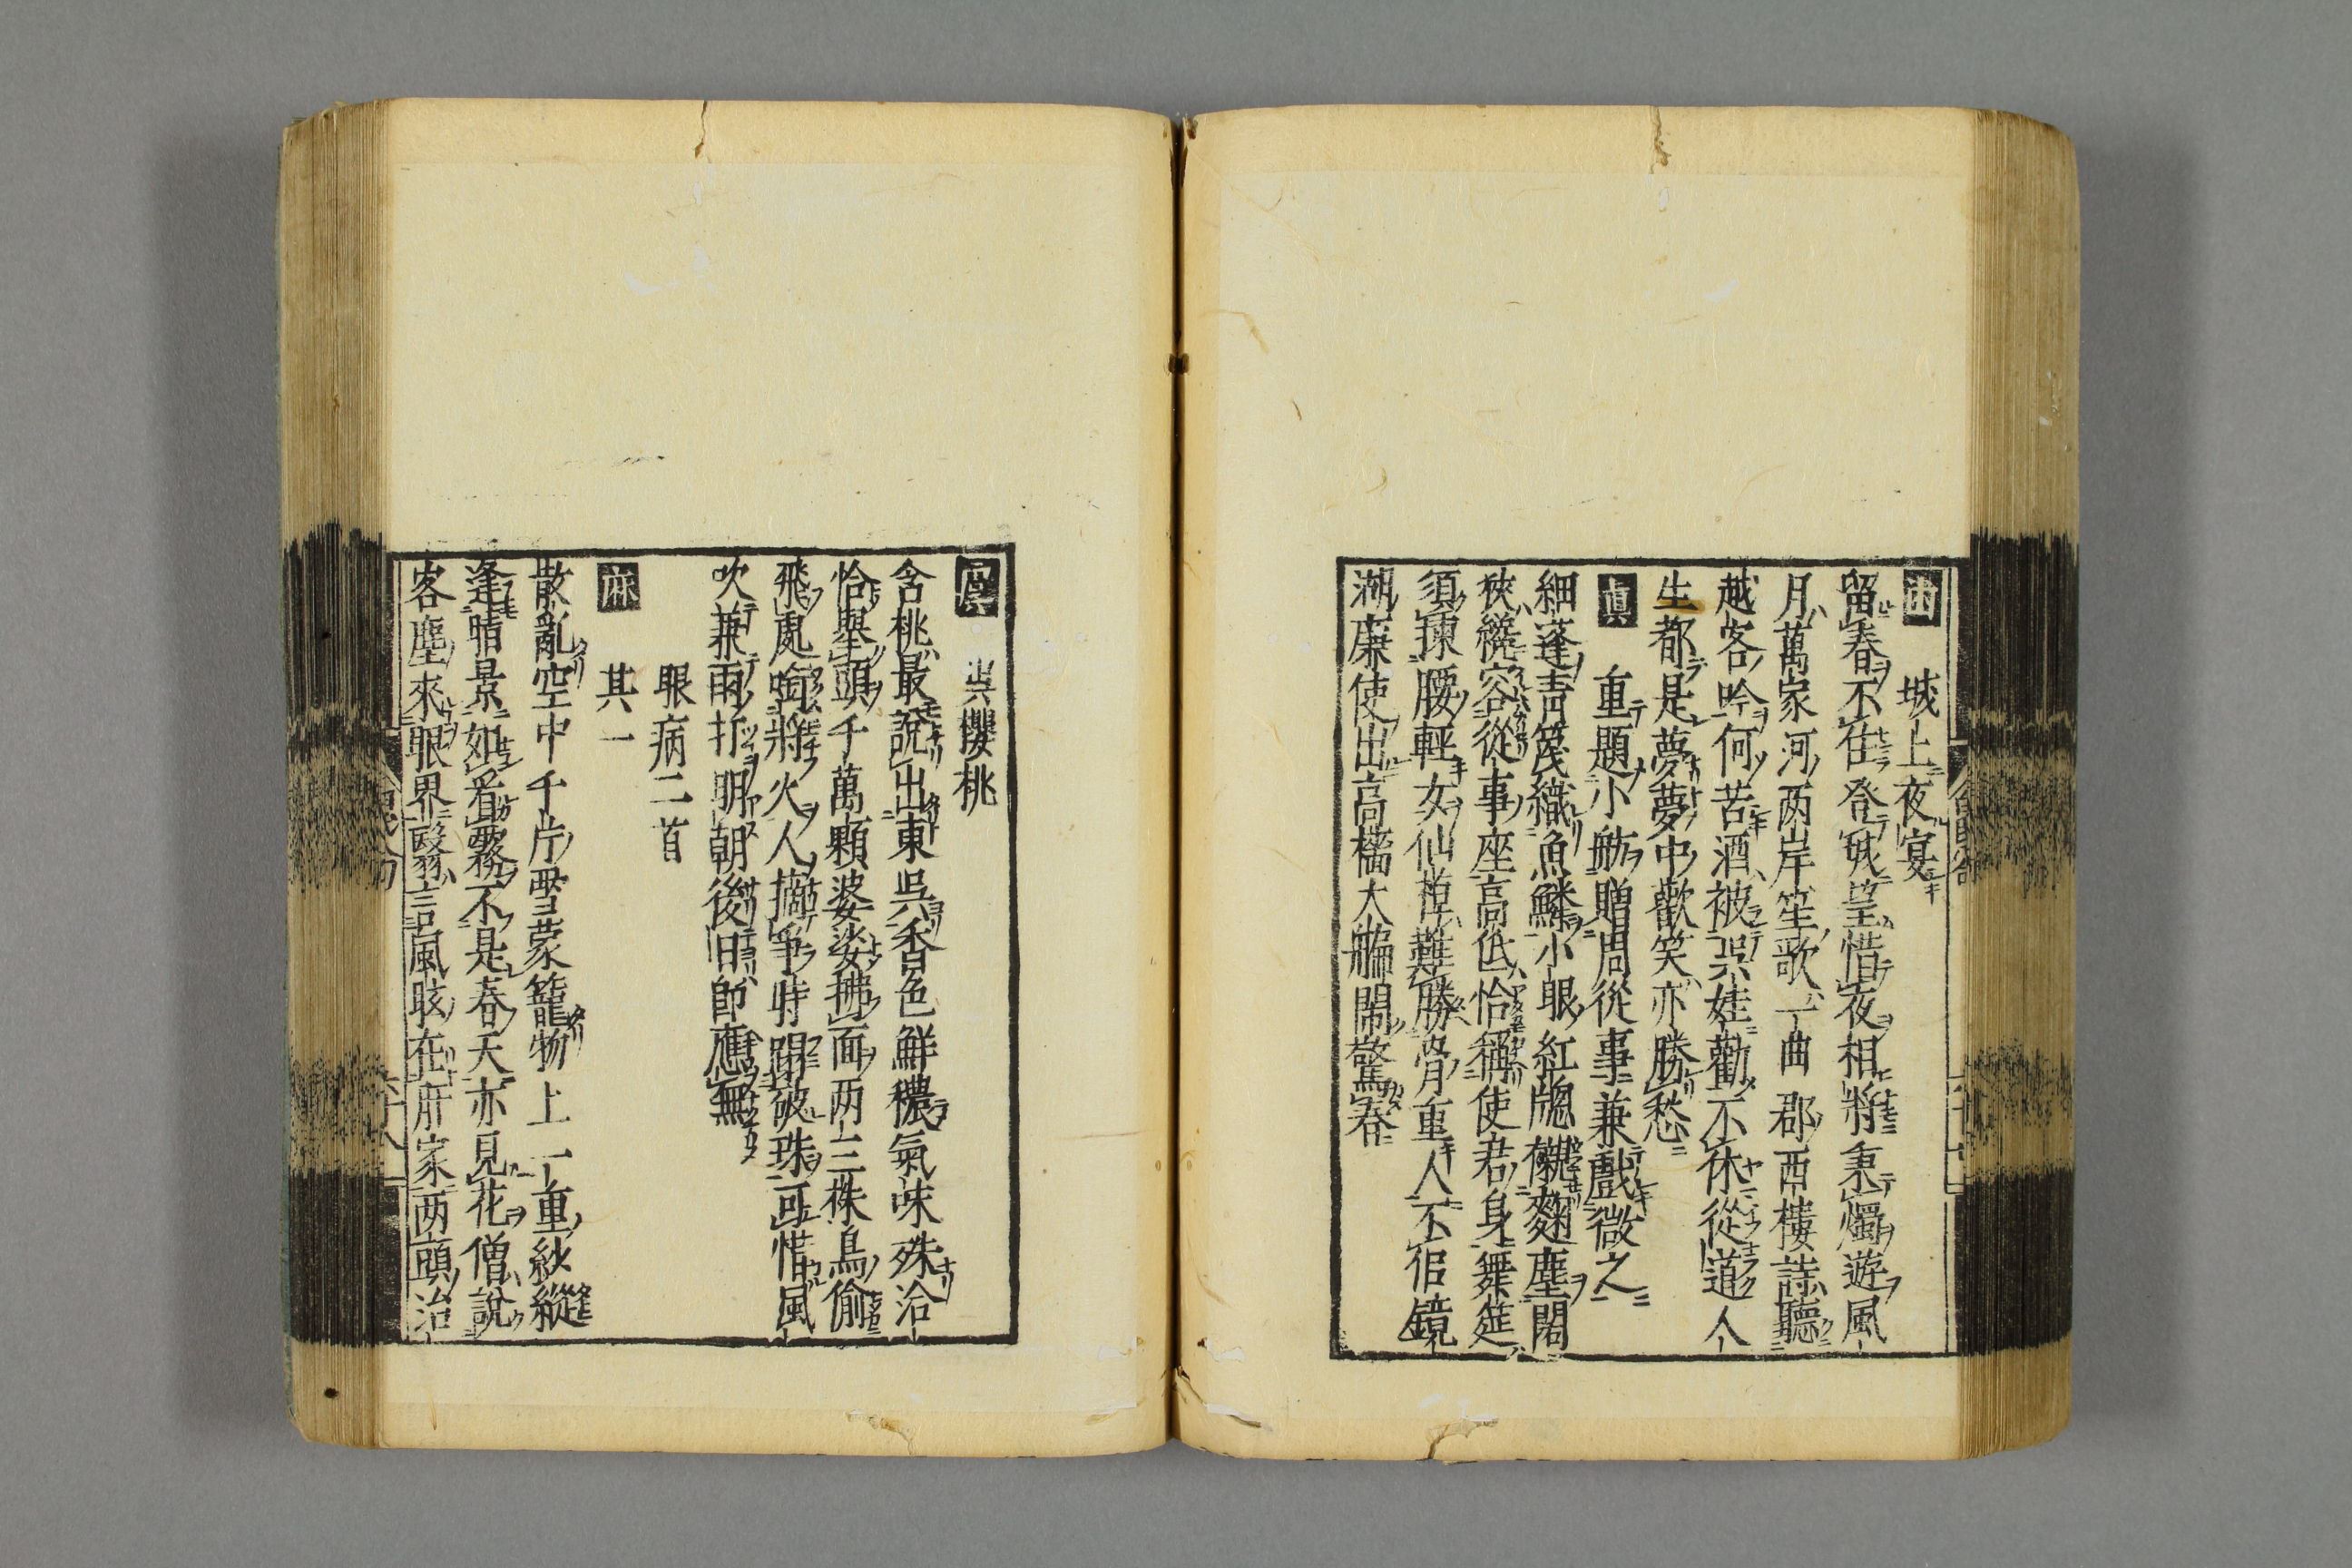 尤 城上夜宴
留春不住登城望惜夜相將秉燭遊風
月萬家河两岸笙歌一曲郡西樓詩聽
越客吟何苦酒被吳娃勸不休從道人
生都是夢夢中歡笑亦勝愁
眞 重題小舫贈周從事兼戲微之
細蓬青篾織魚鱗小眼紅牕襯麴塵闊
狹纔容從事座高低恰稱使君身舞筵
須揀腰輕女仙棹難勝骨重人不佀鏡
湖廉使出高檣大艑閙驚春
虞 吳櫻桃
含桃最說出東吳香色鮮穠氣味殊洽
恰舉頭千萬顆婆娑拂面两三株鳥偷
飛處啣將火人摘爭時蹋破珠可惜風
吹兼雨打明朝後日即應無
眼病二首
麻 其一
散亂空中千片雪蒙籠物上一重紗縱
逢晴景如看霧不是春天亦見花僧說
客塵來眼界醫言風眩在肝家两頭治